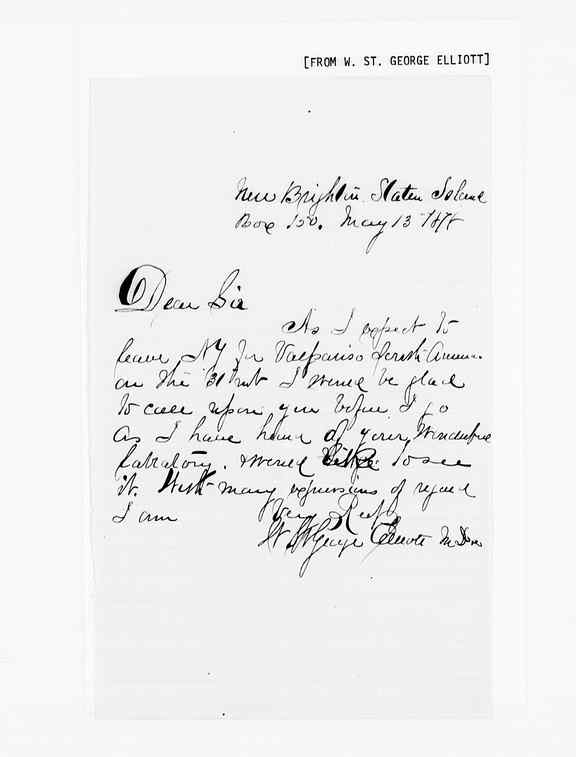 [FROM W. ST. GEORGE ELLIOTT]
New Brighton Staten Island
Box 150. May 13 1878
Dear Sir
As I expect to
leave NY for Valpariso South
on the 31 I would be glad
to call upon you before I go
As I have heard of your Wonderful
labratory. & would like to see
it. With many expressions of regard
I am Very Resp
W St George Elliott